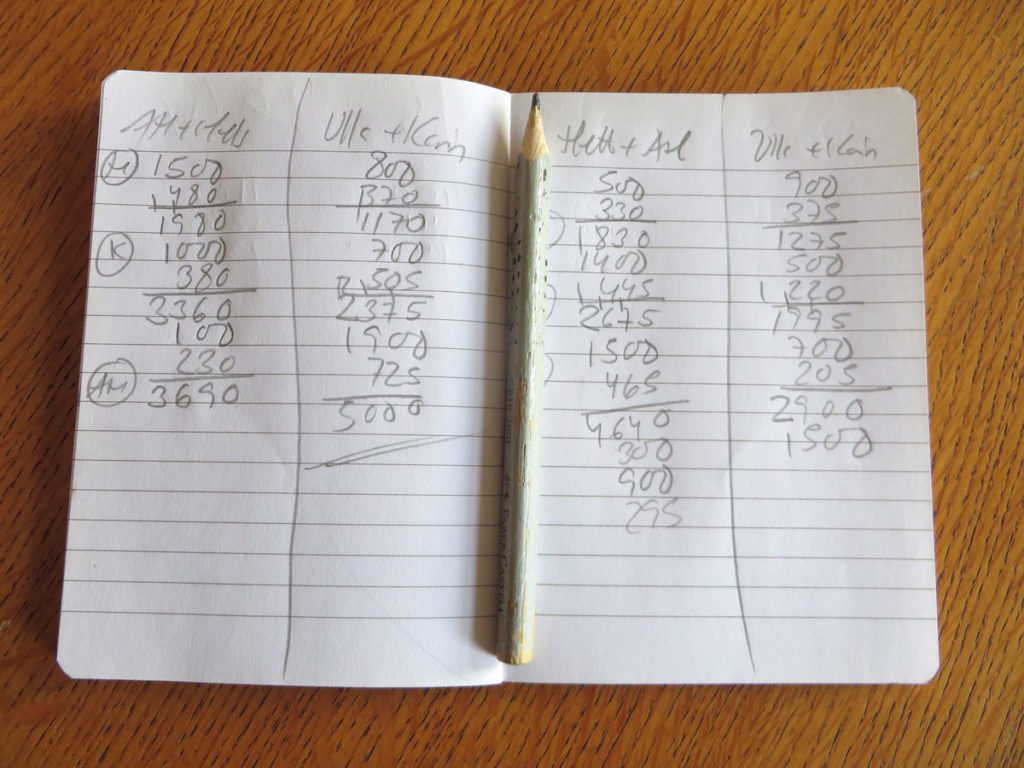 H 1500
480
1980
K 1000
380
3360
100
230
AH 3690
Ulla + Karin
800
370
1170
700
505
2375
1900
725
5000
500
330
830
1400
445
2675
1500
465
4640
300
900
295
Ulla + Karin
900
375
1275
500
220
1995
700
205
2900
1500